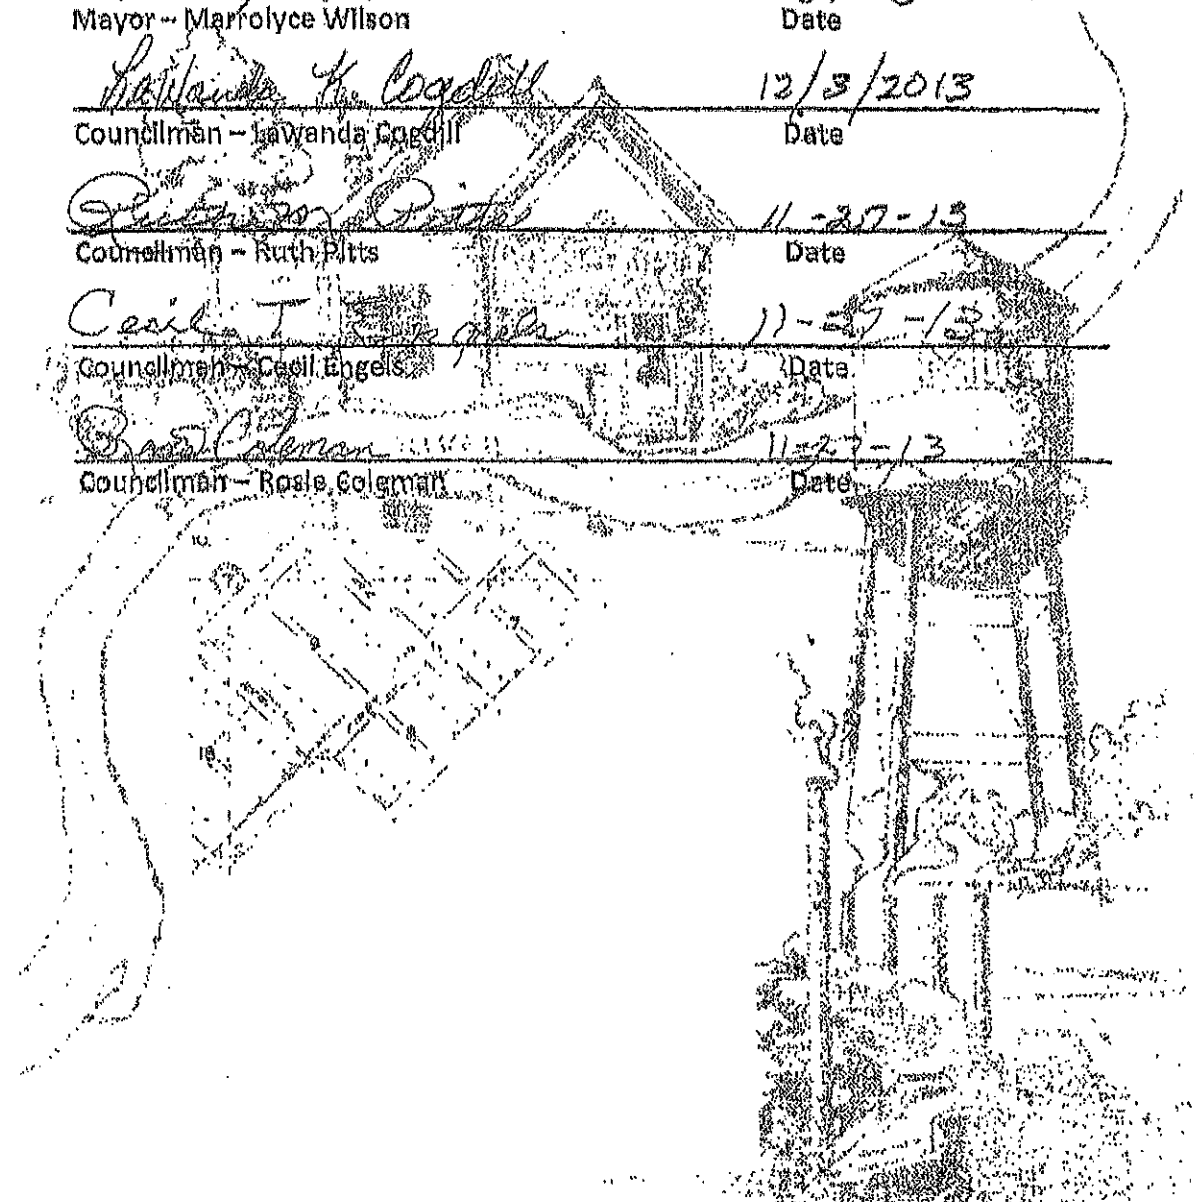 Mayor – Marrolyce Wilson Date
LaWanda K. Cogdill 12/3/2013
Councilman – LaWanda Cogdill Date
Pitts 11-27-13
Councilman – Ruth Pitts Date
Cecil T Engels 11-27-13
Councilman – Cecil Engels Date
Coleman 11-27-13
Councilman – Rosie Coleman Date
10
7
9
8
18